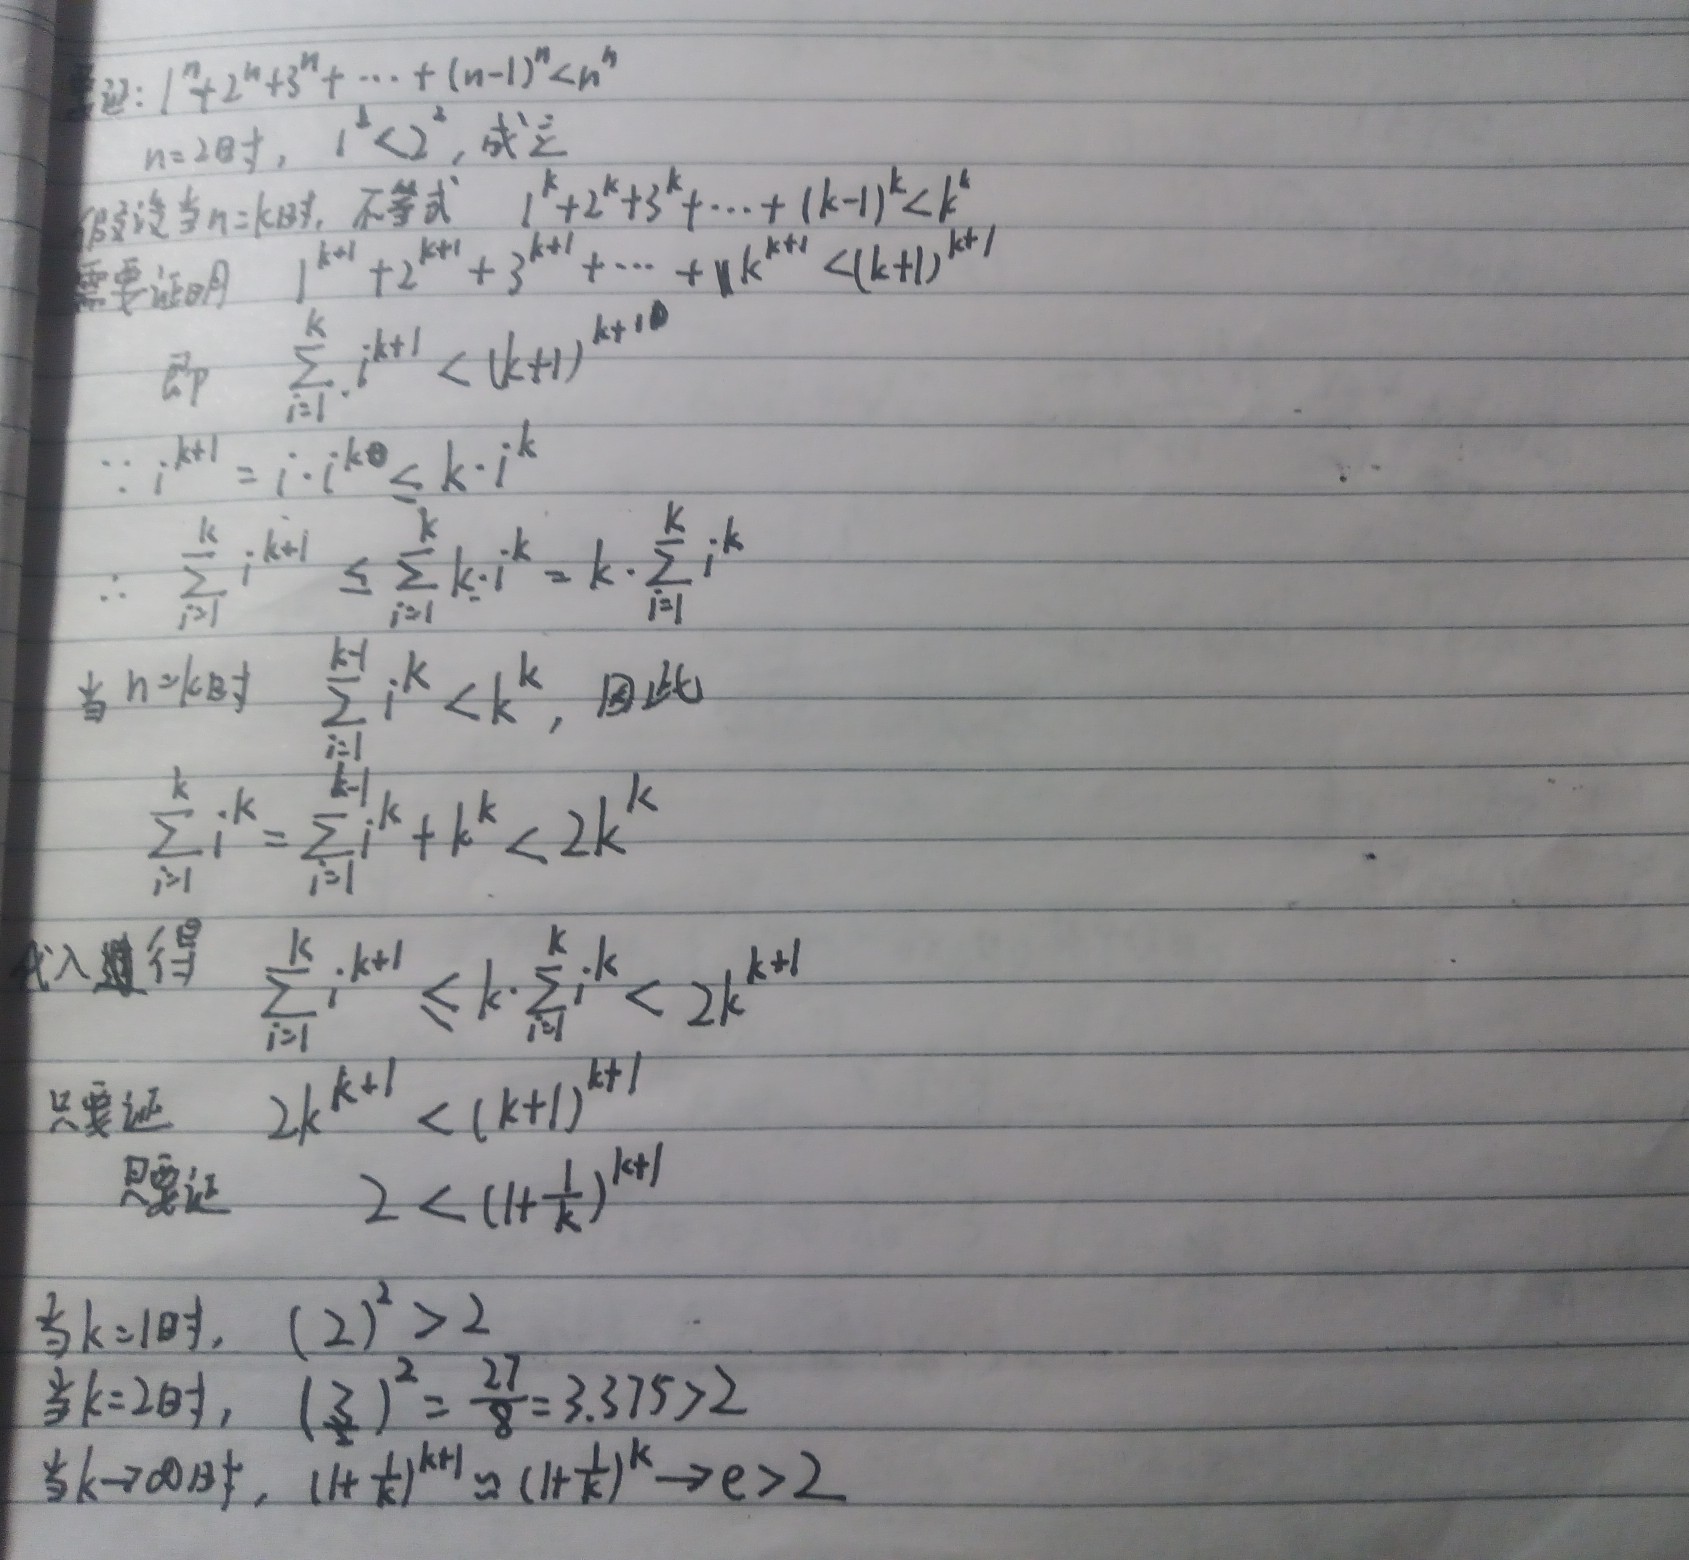 要证: 1^n+2^n+3^n+…+(n-1)^n<n^n
n=2时, 1^2<2^2, 成立
假设当n=k时, 不等式 1^k+2^k+3^k+…+(k-1)^k<k^k
需要证明 1^{k+1}+2^{k+1}+3^{k+1}+…+k^{k+1}<(k+1)^{k+1}
即 \sum_{i=1}^{k} i^{k+1}<(k+1)^{k+1}
∵ i^{k+1}=i·i^k≤k·i^k
∴ \sum_{i=1}^{k} i^{k+1}≤\sum_{i=1}^{k} k·i^k=k·\sum_{i=1}^{k} i^k
当n=k时 \sum_{i=1}^{k-1} i^k<k^k, 因此
\sum_{i=1}^{k} i^k=\sum_{i=1}^{k-1} i^k+k^k<2k^k
代入得 \sum_{i=1}^{k} i^{k+1}≤k·\sum_{i=1}^{k} i^k<2k^{k+1}
只要证 2k^{k+1}<(k+1)^{k+1}
只要证 2<(1+\frac{1}{k})^{k+1}
当k=1时, (2)^2>2
当k=2时, (\frac{3}{2})^2=\frac{27}{8}=3.375>2
当k→∞时, (1+\frac{1}{k})^{k+1}≈(1+\frac{1}{k})^k→e>2